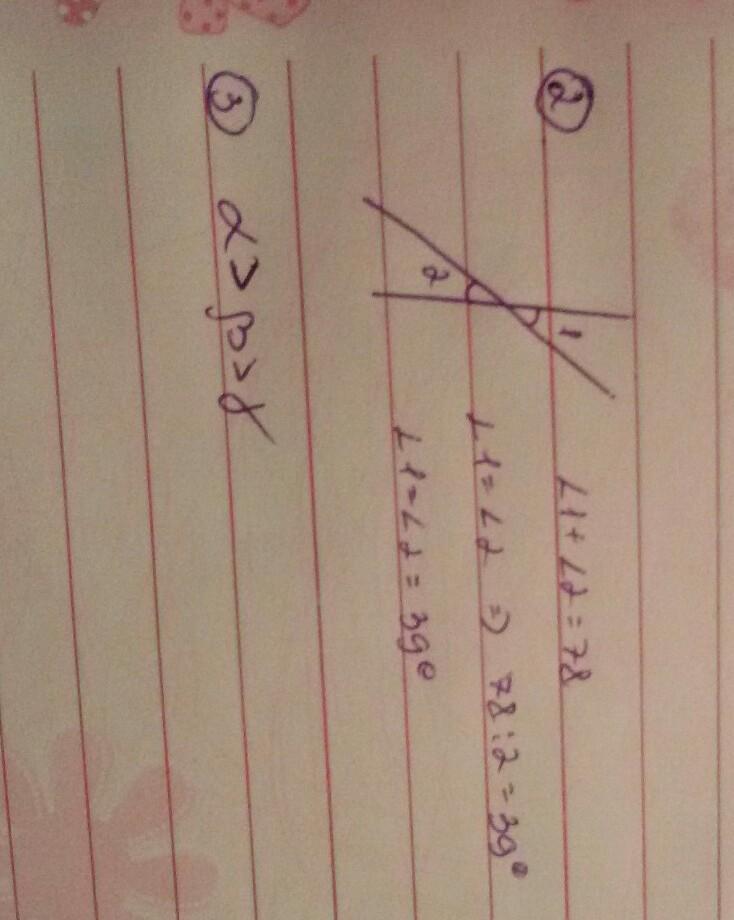 ②
2
1
∠1+∠2=78
∠1=∠2 ⇒ 78:2=39°
∠1=∠2=39°
③ α>β>γ